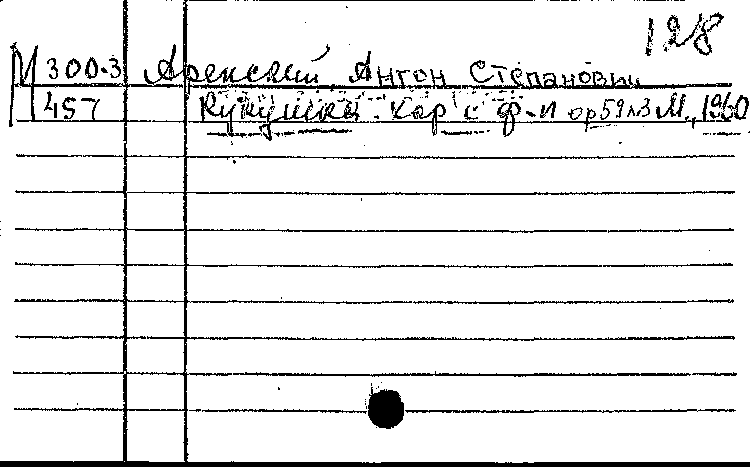 128
М 300-3 Аренский, Антон Степанович
457 Кукушка. Хор с ф-п ор59 №3 М., 1960